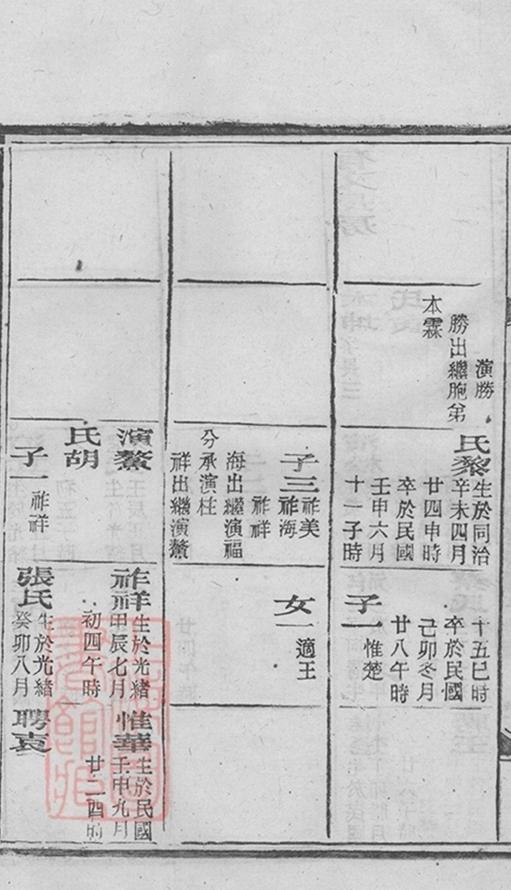 演勝
勝出繼胞弟
本霖
氏黎
生於同治
辛未四月
廿四申時
卒於民國
壬申六月
十一子時
十五巳時
卒於民國
己卯冬月
廿八午時
子一
惟楚
子三
祚美
祚海
祚祥
海出繼演福
分承演柱
祥出繼演鰲
女一
適王
演鰲
氏胡
子一
祚祥
祚祥
生於光緒
甲辰七月
初四午時
張氏
生於光緒
癸卯八月
惟華
生於民國
壬申九月
廿二酉時
聘袁